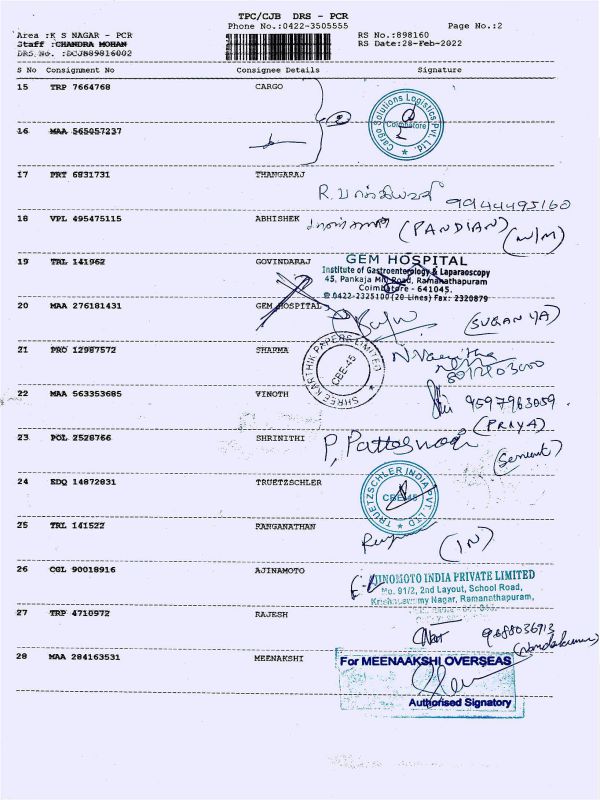 TPC/CJB DRS - PCR
Phone No.:0422-3505555
Page No.:2
Area :K S NAGAR - PCR
Staff :CHANDRA MOHAN
DRS No. :DCJB89816002
RS No.:898160
RS Date:28-Feb-2022
S No Consignment No Consignee Details Signature
15 TRP 7664768 CARGO
Cargo Solutions Logistics Pvt. Ltd.
Coimbatore
16 MAA 565057237
17 PRT 6831731 THANGARAJ
9944495160
18 VPL 495475115 ABHISHEK (PANDIAN)
19 TRL 141962 GOVINDARAJ
GEM HOSPITAL
Institute of Gastroenterology & Laparaoscopy
45, Pankaja Mill Road, Ramanathapuram
Coimbatore - 641045.
0422-2325100 (20 Lines) Fax: 2320879
20 MAA 276181431 GEM HOSPITAL (SUGANYA)
21 PRO 12987572 SHARMA
SHREE KARTHIK PAPERS LIMITED
CBE-45
22 MAA 563353685 VINOTH 9597963059
(PRAYA)
23 POL 2528766 SHRINITHI
(Servent)
24 EDQ 14872831 TRUETZSCHLER
TRUETZSCHLER INDIA PVT. LTD
CBE-45
25 TRL 141522 RANGANATHAN
(IN)
26 CGL 90018916 AJINAMOTO
AJINOMOTO INDIA PRIVATE LIMITED
No. 91/2, 2nd Layout, School Road,
Krishnaswamy Nagar, Ramanathapuram,
27 TRP 4710972 RAJESH
9688036913
(Nandakumar)
28 MAA 284163531 MEENAKSHI
For MEENAAKSHI OVERSEAS
Authorised Signatory